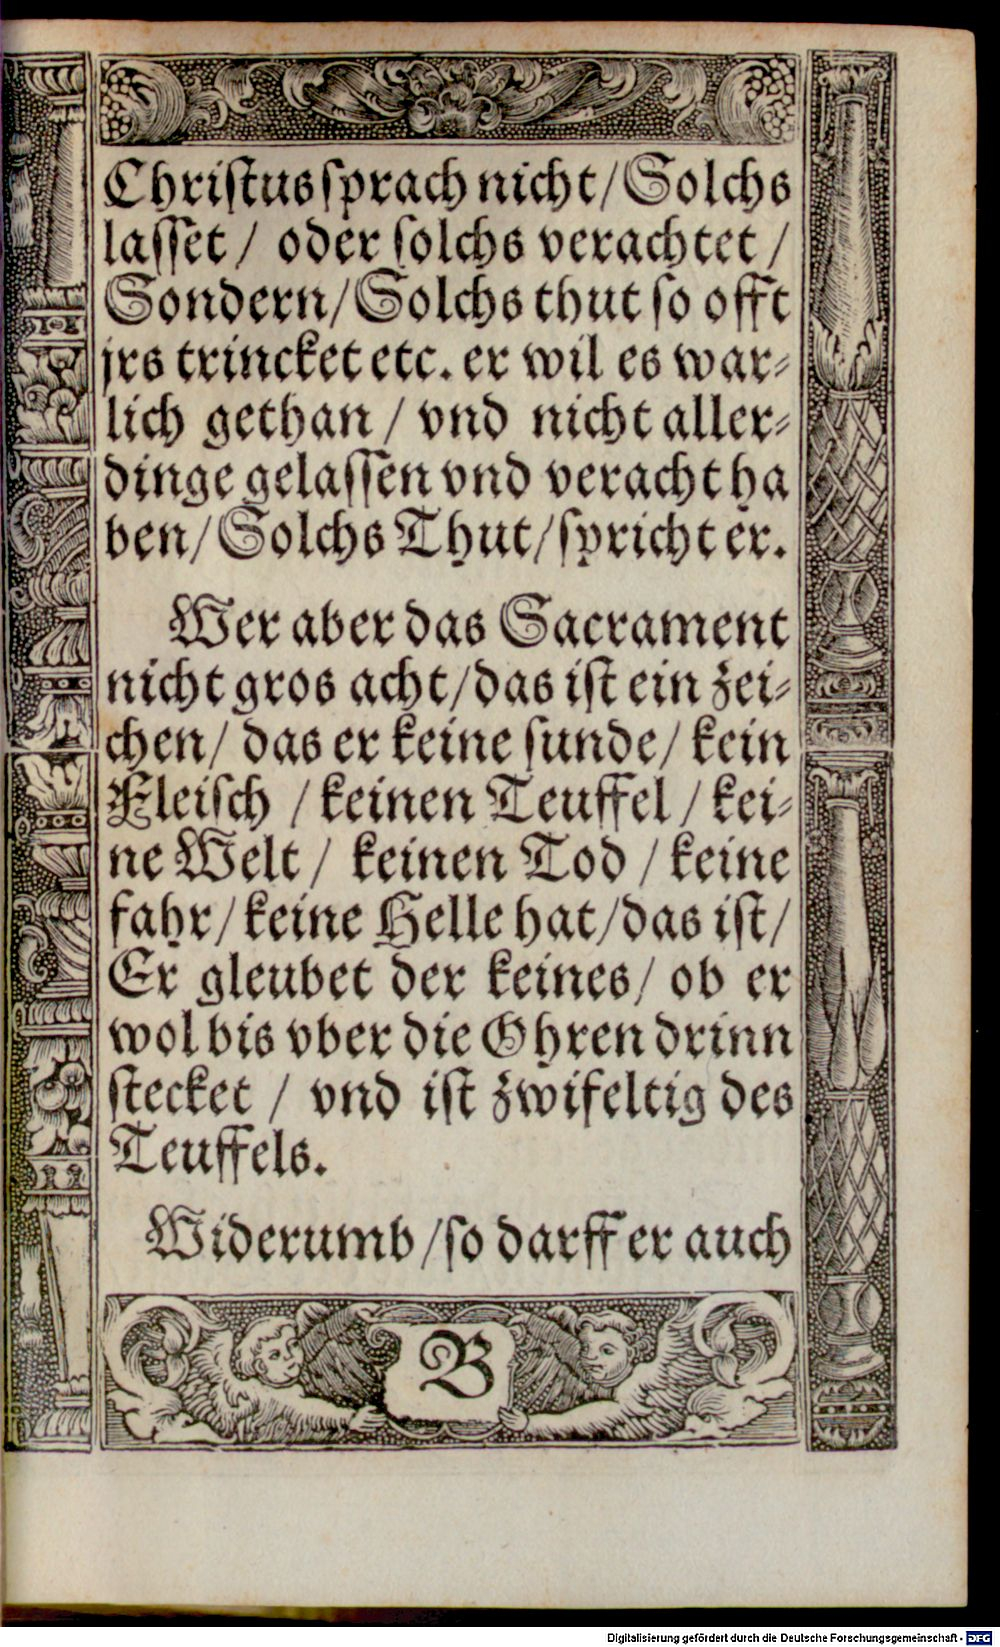 Christus sprach nicht/ Solchs
lasset / oder solchs verachtet /
Sondern/ Solchs thut so offt
jrs trincket etc. er wil es war⸗
lich gethan / vnd nicht aller⸗
dinge gelassen vnd veracht ha
ben/ Solchs Thut/ spricht er.
Wer aber das Sacrament
nicht gros acht/ das ist ein zei⸗
chen/ das er keine sunde/ kein
Fleisch / keinen Teuffel / kei⸗
ne Welt / keinen Tod / keine
fahr/ keine Helle hat/ das ist/
Er gleubet der keines/ ob er
wol bis vber die Ohren drinn
stecket / vnd ist zwifeltig des
Teuffels.
Widerumb/ so darff er auch
B
Digitalisierung gefördert durch die Deutsche Forschungsgemeinschaft - DFG